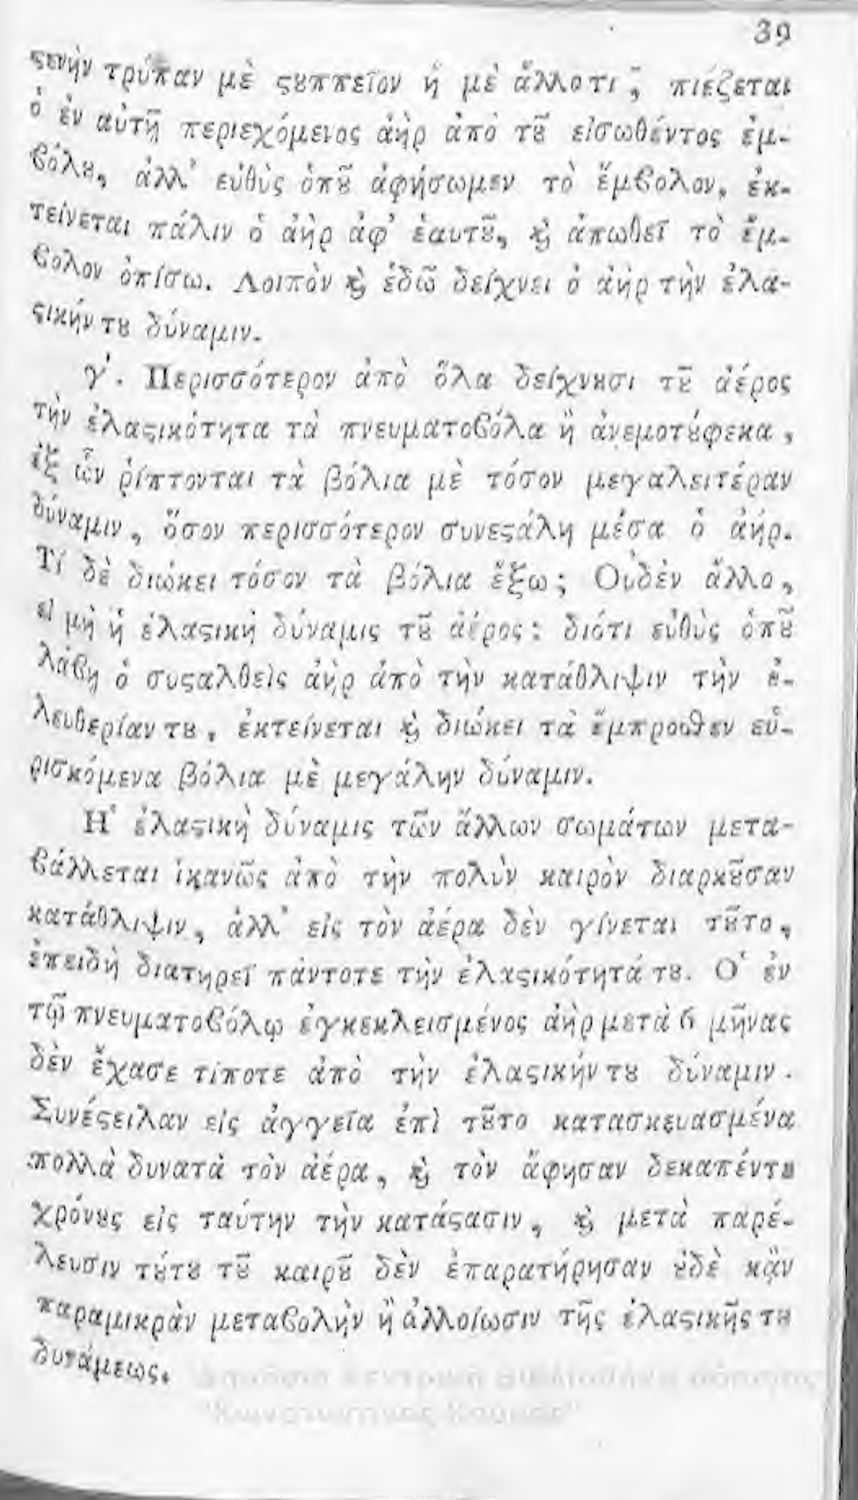 39
ϛενὴν τρύπαν μὲ ϛȣππεῖον ἢ μὲ ἄλλοτι, πιέζεται
ὁ ἐν αὐτῇ περιεχόμενος ἀὴρ ἀπὸ τȣ͂ εἰσωθέντος ἐμ-
βόλȣ, ἀλλ' εὐθὺς ὁπȣ͂ ἀφήσωμεν τὸ ἔμβολον, ἐκ-
τείνεται πάλιν ὁ ἀὴρ ἀφ' ἑαυτȣ͂, ϗ̀ ἀπωθεῖ τὸ ἔμ-
βολον ὀπίσω. Λοιπὸν ϗ̀ ἐδῶ δείχνει ὁ ἀὴρ τὴν ἐλα-
ϛικήν τȣ δύναμιν.
γ'. Περισσότερον ἀπὸ ὅλα δείχνȣσι τȣ͂ ἀέρος
τὴν ἐλαϛικότητα τὰ πνευματοβόλα ἢ ἀνεμοτȣ́φεκα,
ἐξ ὧν ῥίπτονται τὰ βόλια μὲ τόσον μεγαλειτέραν
δύναμιν, ὅσον περισσότερον συνεϛάλη μέσα ὁ ἀήρ.
Τί δὲ διώκει τόσον τὰ βόλια ἔξω; Οὐδὲν ἄλλο,
εἰ μὴ ἡ ἐλαϛικὴ δύναμις τȣ͂ ἀέρος: διότι εὐθὺς ὁπȣ͂
λάβῃ ὁ συϛαλθεὶς ἀὴρ ἀπὸ τὴν κατάθλιψιν τὴν ἐ-
λευθερίαν τȣ, ἐκτείνεται ϗ̀ διώκει τὰ ἔμπροσθεν εὑ-
ρισκόμενα βόλια μὲ μεγάλην δύναμιν.
Ἡ ἐλαϛικὴ δύναμις τῶν ἄλλων σωμάτων μετα-
βάλλεται ἱκανῶς ἀπὸ τὴν πολὺν καιρὸν διαρκȣ͂σαν
κατάθλιψιν, ἀλλ' εἰς τὸν ἀέρα δὲν γίνεται τȣ͂το,
ἐπειδὴ διατηρεῖ πάντοτε τὴν ἐλαϛικότητά τȣ. Ὁ ἐν
τῷ πνευματοβόλῳ ἐγκεκλεισμένος ἀὴρ μετὰ 6 μῆνας
δὲν ἔχασε τίποτε ἀπὸ τὴν ἐλαϛικήν τȣ δύναμιν.
Συνέϛειλαν εἰς ἀγγεῖα ἐπὶ τȣ͂το κατασκευασμένα
πολλὰ δυνατὰ τὸν ἀέρα, ϗ̀ τὸν ἄφησαν δεκαπέντε
χρόνȣς εἰς ταύτην τὴν κατάϛασιν, ϗ̀ μετὰ παρέ-
λευσιν τȣ́τȣ τȣ͂ καιρȣ͂ δὲν ἐπαρατήρησαν ȣ̓δὲ κᾂν
παραμικρὰν μεταβολὴν ἢ ἀλλοίωσιν τῆς ἐλαϛικῆς τȣ
δυνάμεως.
Δημόσια Κεντρική Βιβλιοθήκη Κοζάνης
"Κωνσταντίνος Κούμας"